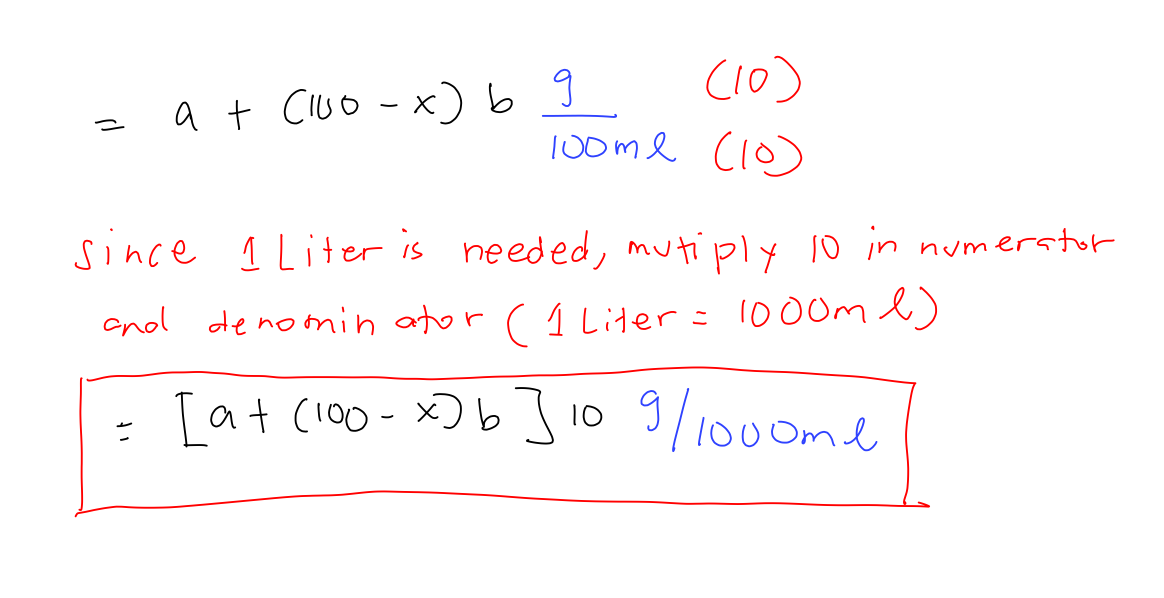 = a + (100 - x) b g/100ml (10)/(10)
since 1 Liter is needed, mutiply 10 in numerator
and denominator ( 1 Liter = 1000ml)
= [a + (100 - x) b ] 10 g/1000ml